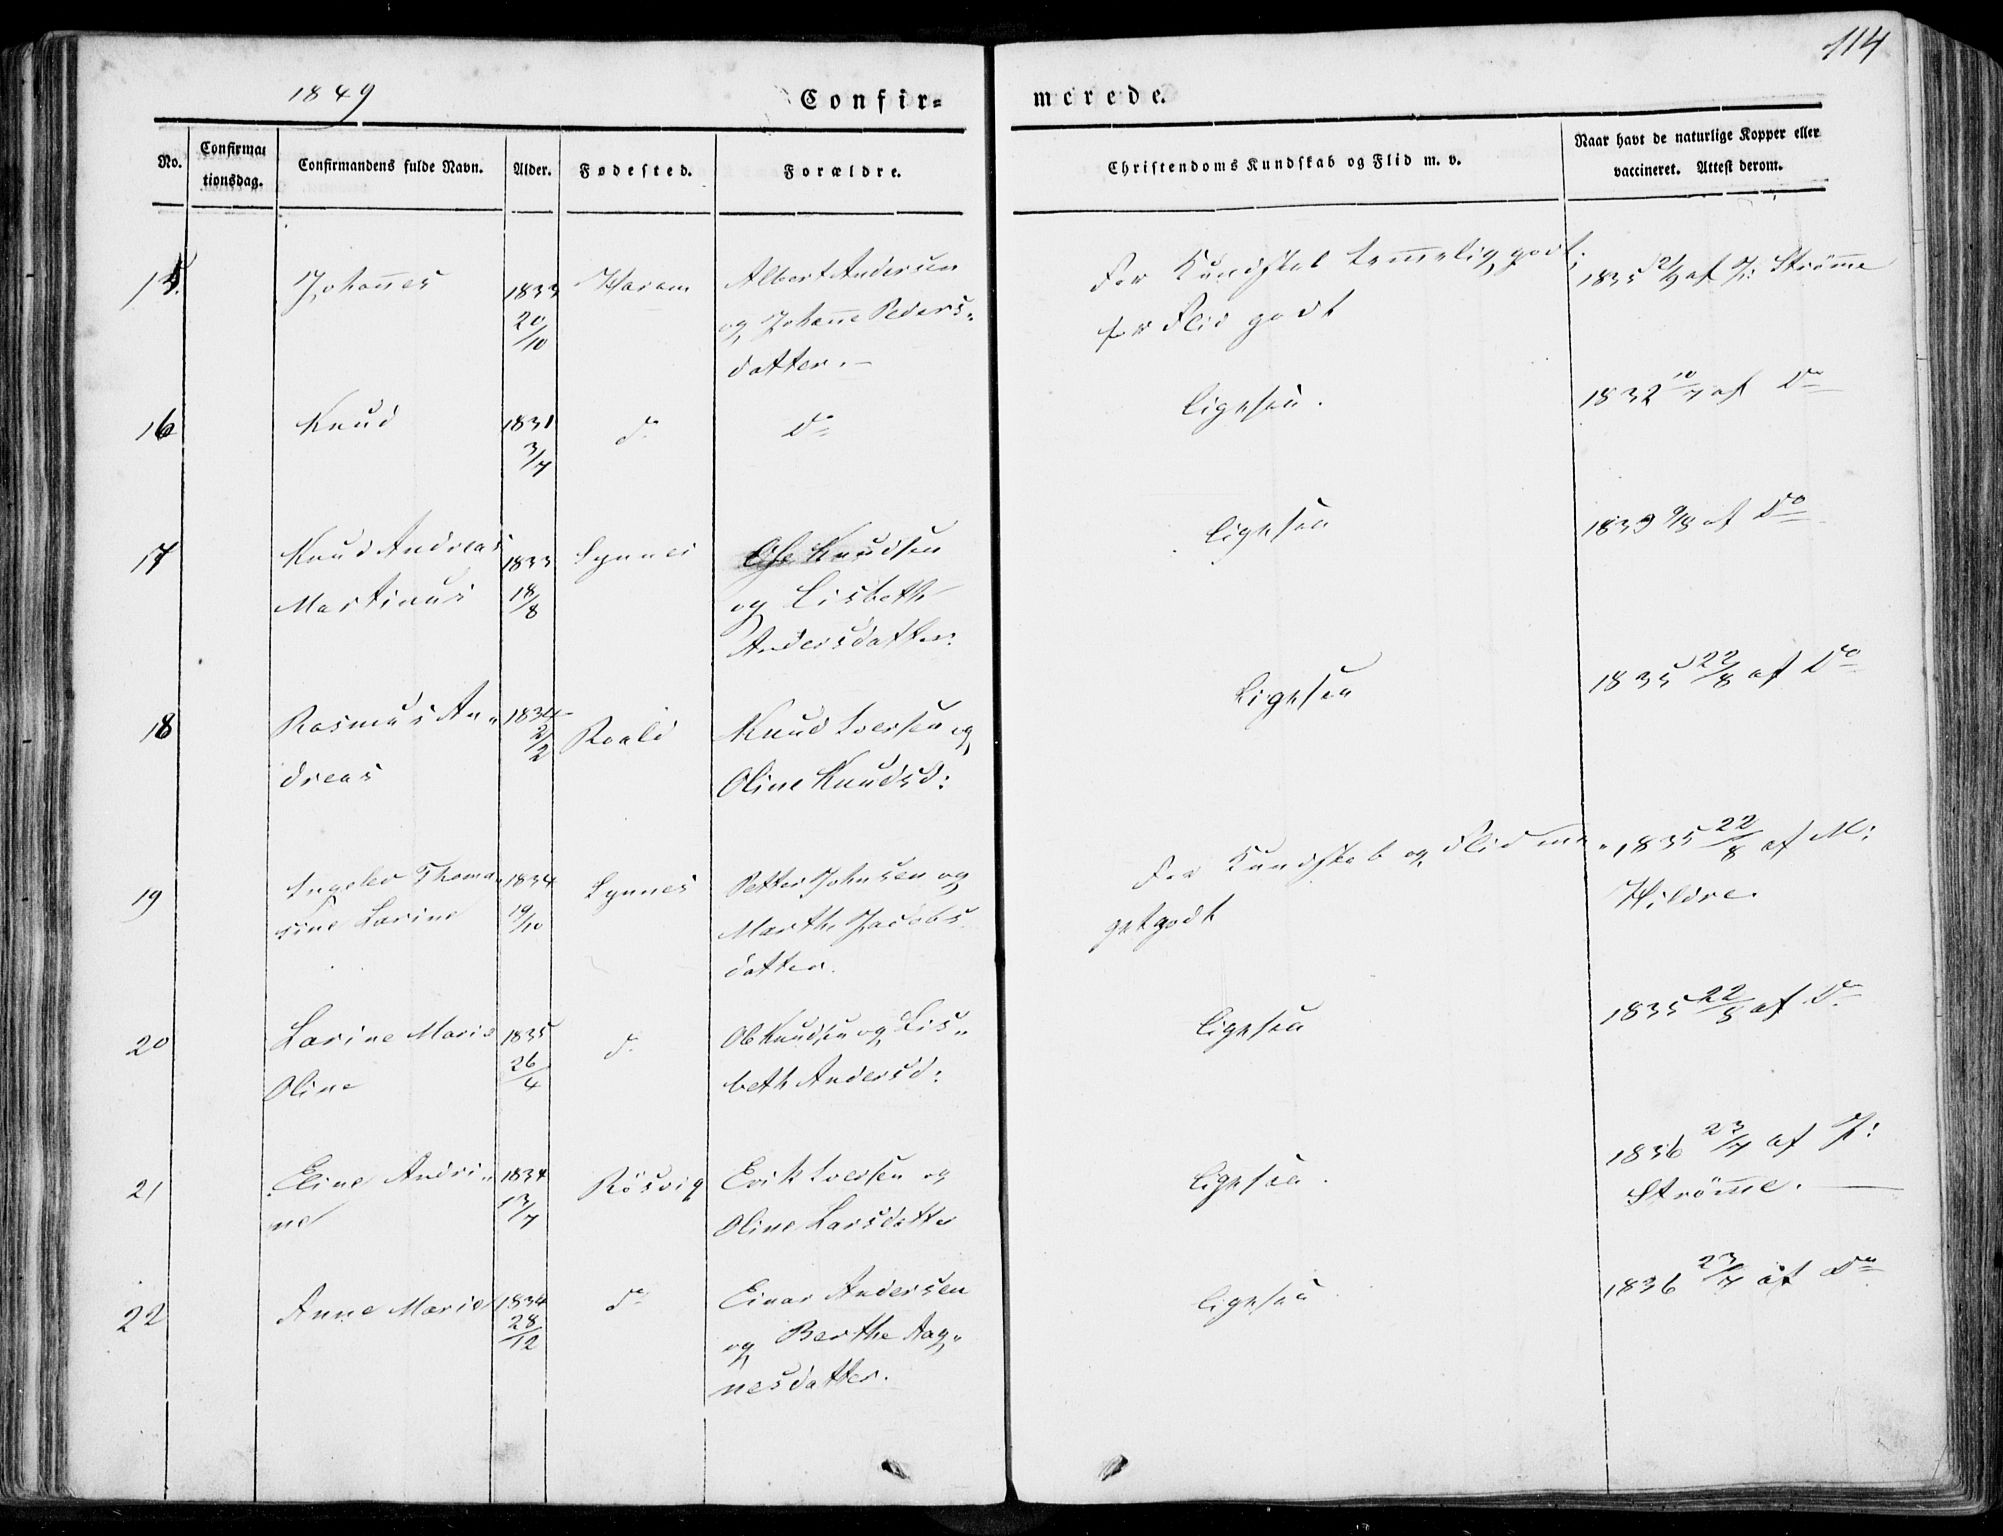 114
1849
Confir-
merede.
No.
Confirma-
tionsdag.
Confirmandens fulde Navn.
Alder.
Fødested.
Forældre.
Christendoms Kundskab og Flid m. v.
Naar havt de naturlige Kopper eller
vaccineret. Attest derom.
15. Johannes 1833 20/10 Haram Albert Andersen
og Johanne Peders-
datter.
For Kundskab temmelig godt;
for Flid godt
1835 af J: Strømme
16 Knud 1831 3/7 do Do
Ligesaa.
1832 10/7 af Do
17 Knud Andreas 1833 18/8 Lynnes Ole Knudsen
Martinus og Lisbeth
Andersdatter.
Ligesaa
1839 9/8 af Do
18 Rasmus An- 1834 2/2 Roald Knud Iversen og
dreas Oline Knudsd:
Ligesaa
1835 22/8 af Do
19 Ingelev Thoma- 1834 19/10 Lynnes Petter Johnsen og
sine Larine Marthe Jacobs-
datter.
For Kundskab og Flid me-
get godt
1835 22/8 af M:
Hildre
20 Larine Marie 1835 26/4 do Ole Knudsen og Lis-
Oline beth Andersd:
Ligesaa
1835 22/8 af Do
21 Eline Andri- 1834 13/7 Rösvig Erik Iversen og
ne Oline Larsdatter
Ligesaa.
1836 23/7 af J:
Strømme.
22 Anne Marie 1834 28/12 do Einar Andersen
og Berthe Aag-
nesdatter.
Ligesaa
1836 23/7 af Do